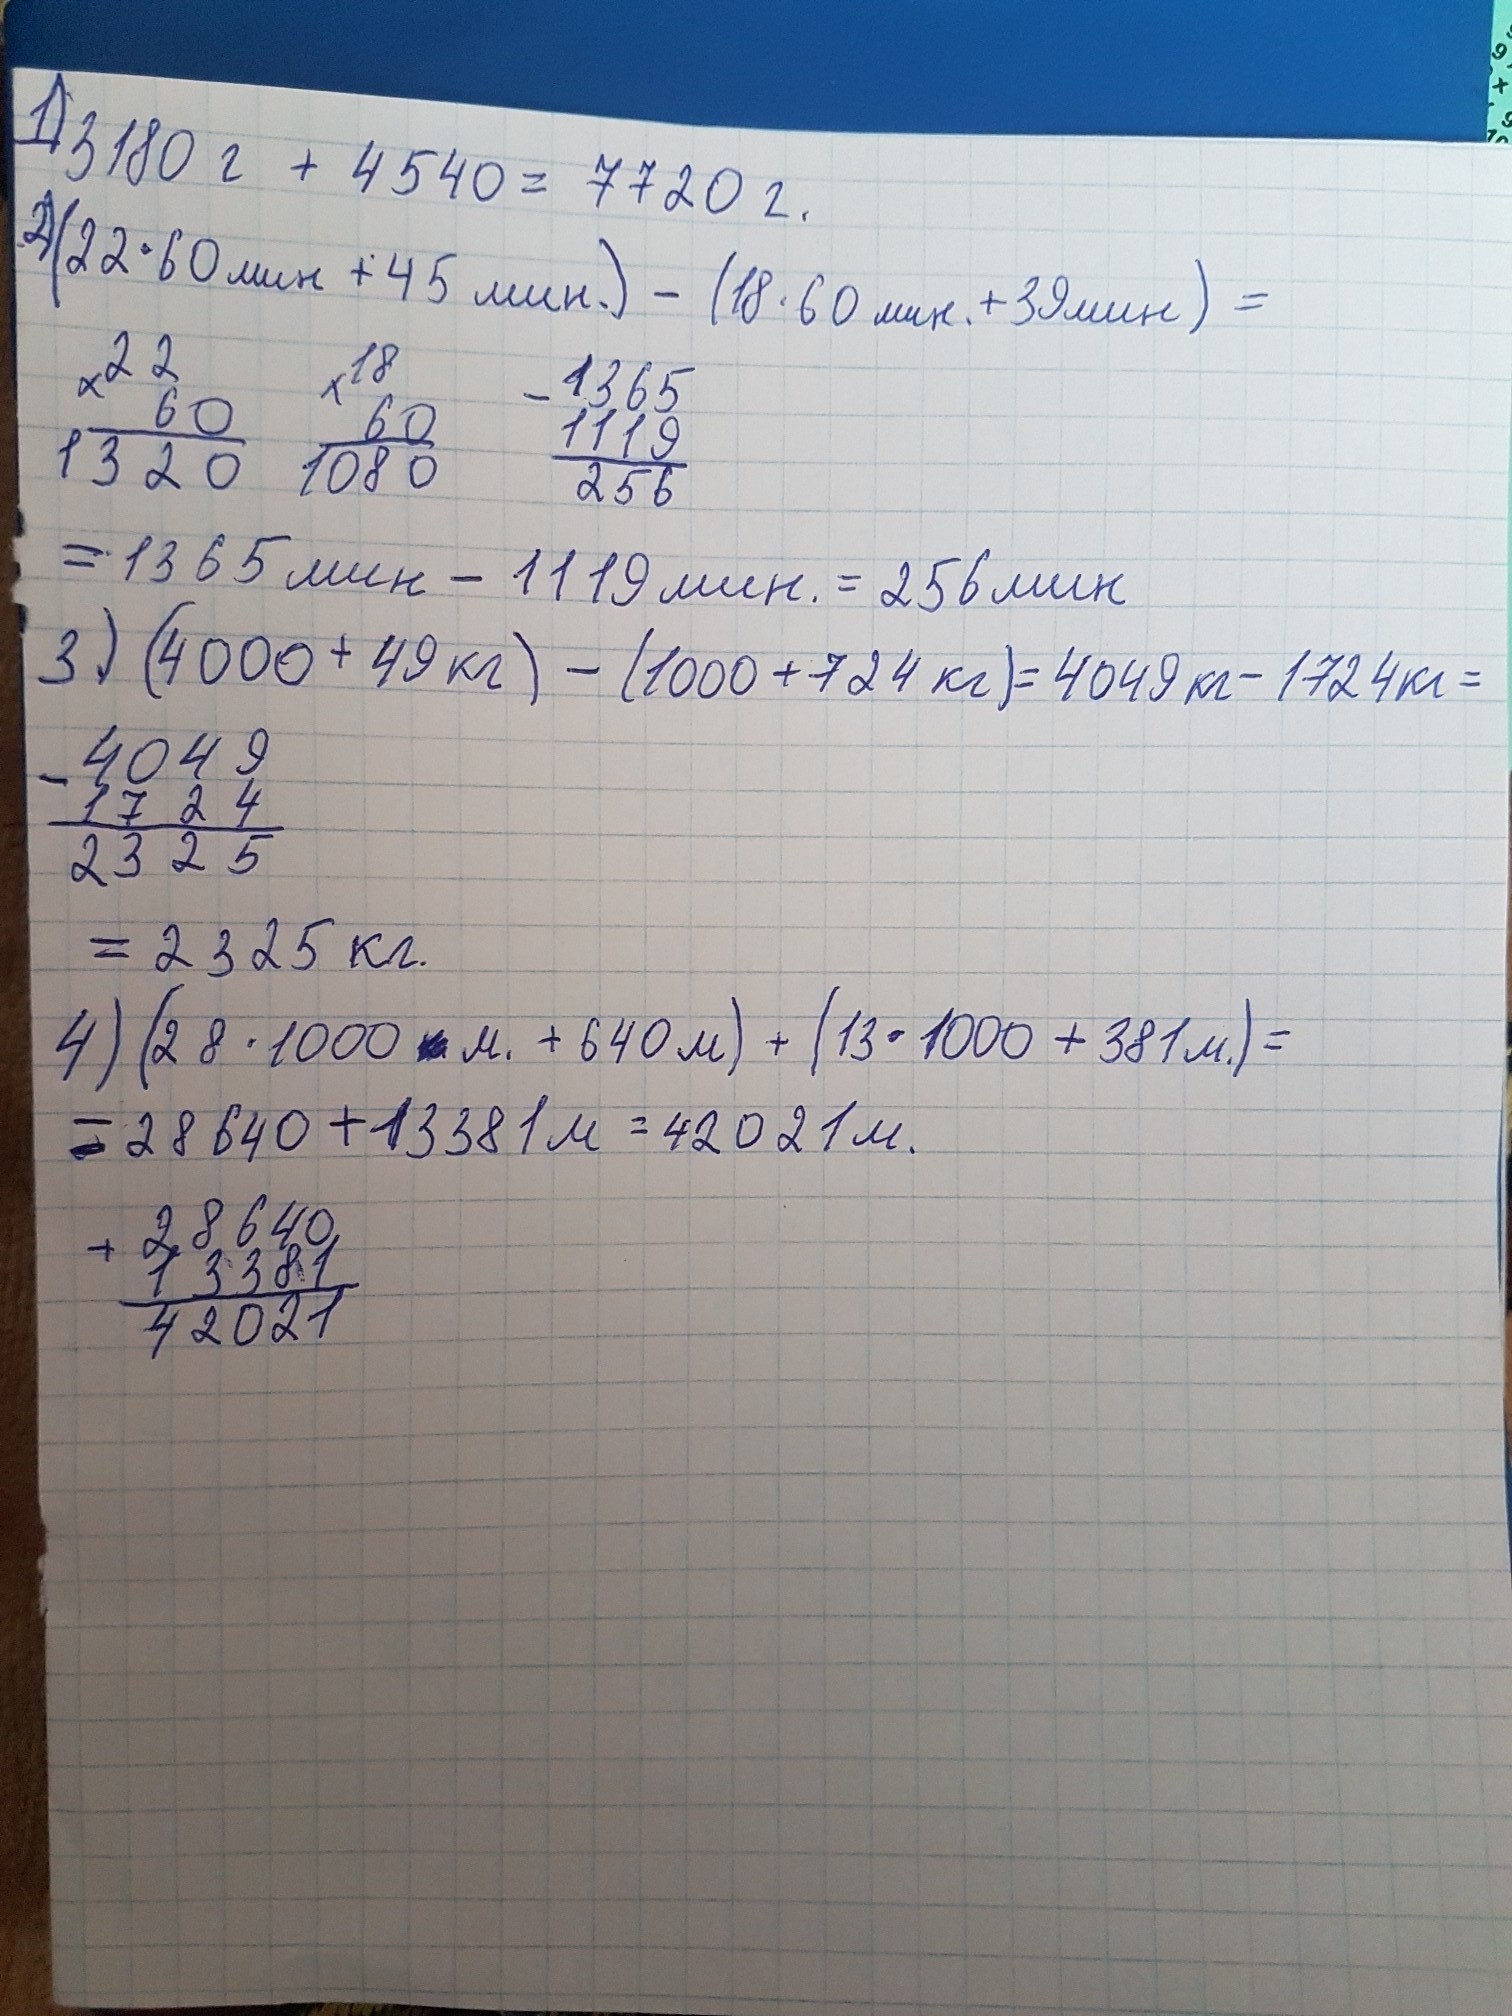 1) 3180 г + 4540 = 7720 г.
2) (22·60 мин + 45 мин.) – (18·60 мин. + 39 мин) =
× 22
60
1320
× 18
60
1080
– 1365
1119
256
= 1365 мин – 1119 мин. = 256 мин
3) (4000 + 49 кг) – (1000 + 724 кг) = 4049 кг – 1724 кг =
– 4049
1724
2325
= 2325 кг.
4) (28·1000 м. + 640 м) + (13·1000 + 381 м.) =
= 28640 + 13381 м = 42021 м.
+ 28640
13381
42021